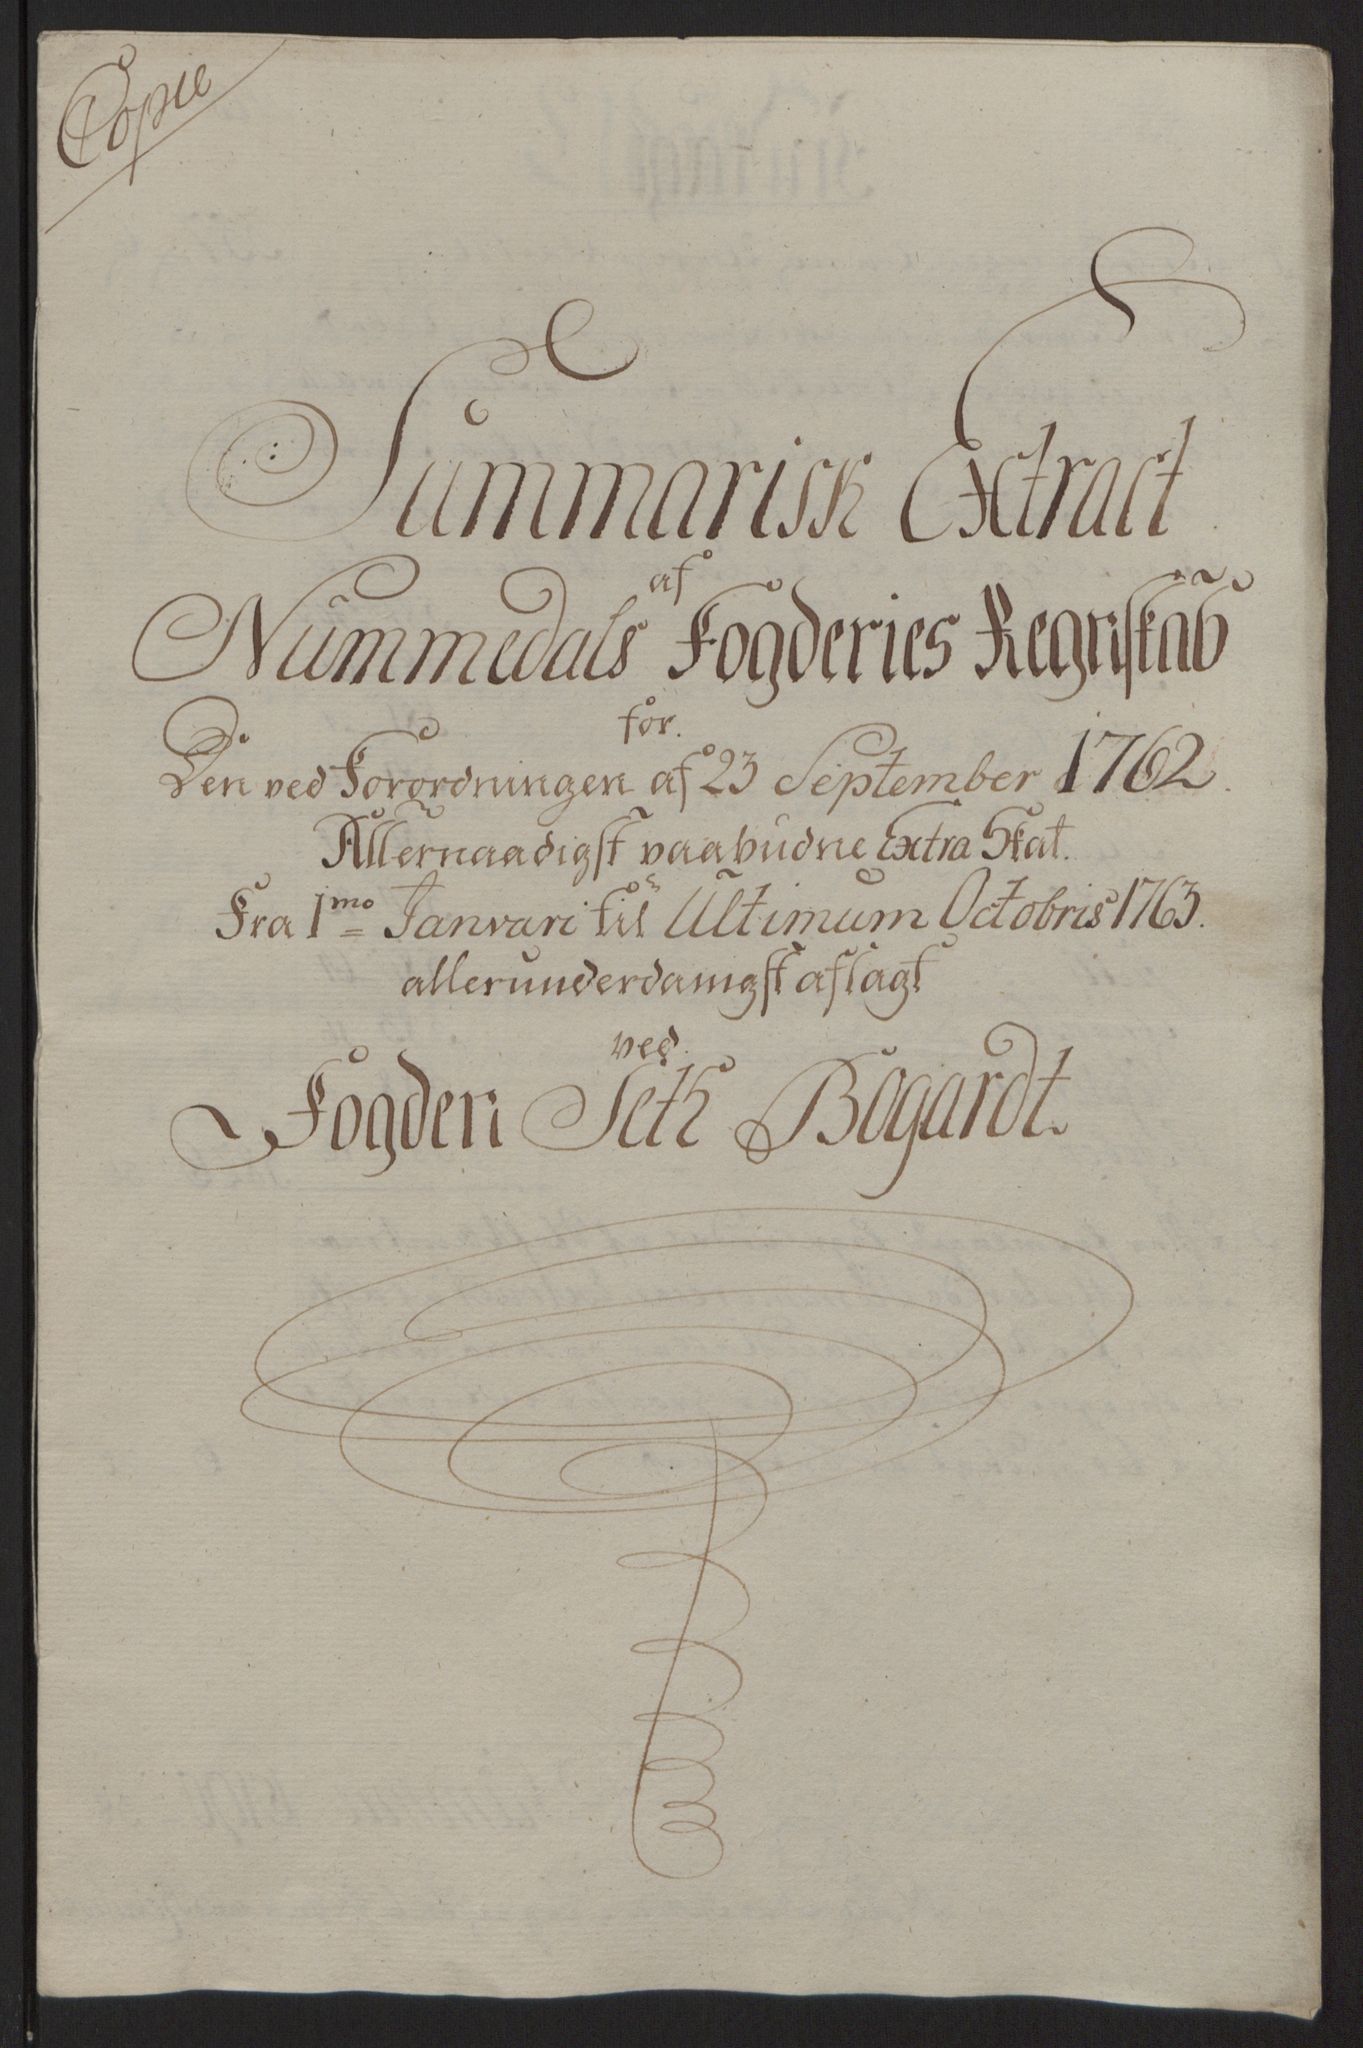 Copie
Summarisk Extract
af
Nummedals Fogderies Regnskab
for.
Den ved Forordningen af 23 September 1762.
Allernaadigst paabudne Extra Skat.
Fra 1mo Janvari til Ultimum Octobris 1763.
allerunderdanigst aflagt
ved.
Fogden Seth Bogardt.